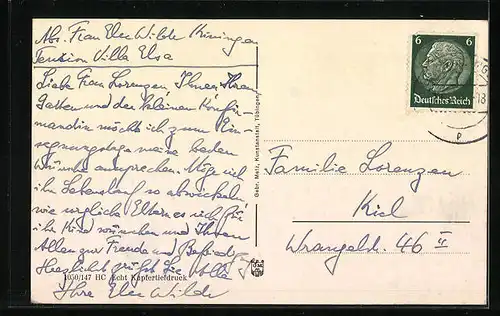 Abs. Frau Else Wilde
Pension Villa Elsa
Liebe Frau Lorenzen, Ihnen Ihrem
Gatten und der kleinen Konfir-
mandin möcht ich zum Ein-
segnungstage meine besten
Wünsche aussprechen. Möge sich
ihr Lebenslauf so abwickeln
wie Eltern es sich für
ihr Kind wünschen und Ihnen
Allen zur Freude und
Herzlichst grüßt Sie Alle
Ihre Else Wilde
1050/147 HC Echt Kupfertiefdruck
Gebr. Metz, Kunstanstalt, Tübingen
6 6
Deutsches Reich
Familie Lorenzen
Kiel
Wrangelstr. 46 II